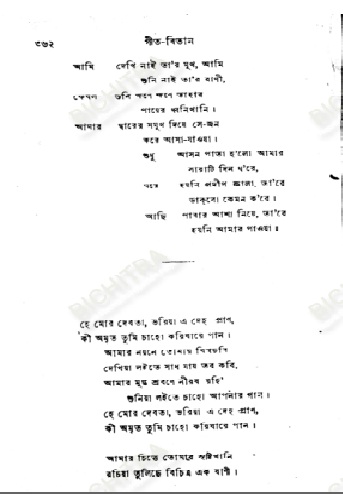 ৩৬২ গীত-বিতান
আমি দেখি নাই তা'র মুখ, আমি
শুনি নাই তা'র বাণী,
কেবল শুনি ক্ষণে ক্ষণে তাহার
পায়ের ধ্বনিখানি।
আমার দ্বারের সমুখ দিয়ে সে-জন
করে আসা-যাওয়া।
শুধু আসন পাতা হ'লো আমার
সারাটি দিন ধ'রে,
ঘরে হয়নি প্রদীপ জ্বালা, তা'রে
ডাক্‌বো কেমন ক'রে।
আছি পাবার আশা নিয়ে, তা'রে
হয়নি আমার পাওয়া।
হে মোর দেবতা, ভরিয়া এ দেহ প্রাণ,
কী অমৃত তুমি চাহো করিবারে পান।
আমার নয়নে তোমার বিশ্বছবি
দেখিয়া লইতে সাধ যায় তব কবি,
আমার মুগ্ধ শ্রবণে নীরব রহি'
শুনিয়া লইতে চাহো আপনার গান।
হে মোর দেবতা, ভরিয়া এ দেহ প্রাণ,
কী অমৃত তুমি চাহো করিবারে পান।
আমার চিত্তে তোমার সৃষ্টিখানি
রচিয়া তুলিছে বিচিত্র এক বাণী।
BICHITRA